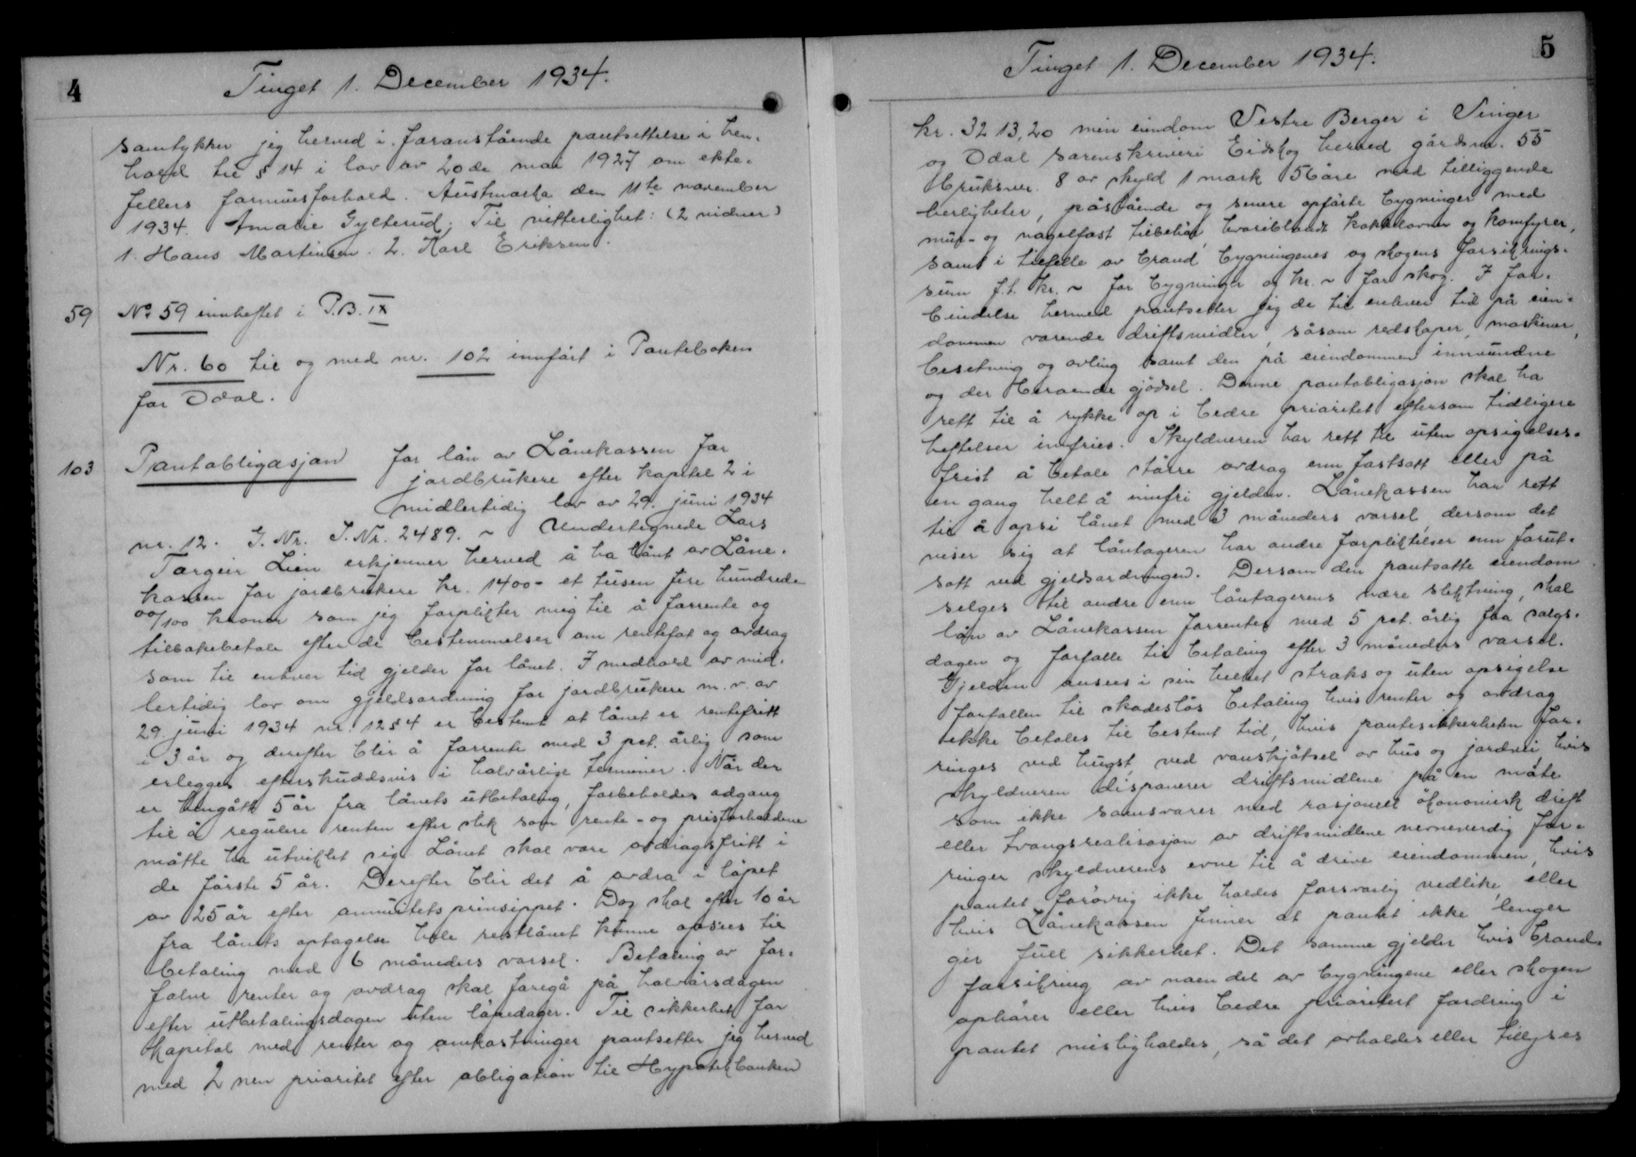 4
Tinget 1. December 1934.
samtykker jeg herved i foranstående pantsettelse i hen-
hold til § 14 i lov av 20de mai 1927 om ekte-
fellers formuesforhold. Austmarka den 11te november
1934. Amalie Gylterud. Til vitterlighet: (2 vidner)
1. Hans Martinsen. 2. Karl Eriksen.
59 No 59 innheftet i P.B. IX
Nr. 60 til og med nr. 102 innført i Panteboken
for Odal.
103 Pantobligasjon for lån av Lånekassen for
jordbrukere efter kapitel 2 i
midlertidig lov av 29. juni 1934
nr. 12. G. Nr. J. Nr. 2489. ~ Undertegnede Lars
Torgeir Lien erkjenner herved å ha lånt av Låne-
kassen for jordbrukere kr. 1400- et tusen fire hundrede
00/100 kroner som jeg forplikter mig til å forrente og
tilbakebetale efter de bestemmelser om rentefot og avdrag
som til enhver tid gjelder for lånet. I medhold av mid-
lertidig lov om gjeldsordning for jordbrukere m.v. av
29. juni 1934 nr. 12 § 4 er bestemt at lånet er rentefritt
i 3 år og derefter blir å forrente med 3 pct. årlig som
erlegges efterskuddsvis i halvårlige terminer. Når der
er hengått 5 år fra lånets utbetaling, forbeholdes adgang
til å regulere renten efter slik som rente- og prisforholdene
måtte ha utviklet sig. Lånet skal være avdragsfritt i
de første 5 år. Derefter blir det å avdra i løpet
av 25 år efter annuitetsprinsippet. Dog skal efter 10 år
fra lånets optagelse hele restlånet kunne opsies til
betaling med 6 måneders varsel. Betaling av for-
falne renter og avdrag skal foregå på halvårsdagen
efter utbetalingsdagen uten løpedager. Til sikkerhet for
kapital med renter og omkostninger pantsetter jeg herved
med 2 nen prioritet efter obligation til Hypotekbanken
5
Tinget 1. December 1934.
kr. 3213,20 min eiendom Vestre Berger i Vinger
og Odal sorenskriveri Eidskog herred gårdsnr. 55
bruksnr. 8 av skyld 1 mark 56 øre med tilliggende
herligheter, påstående og senere opførte bygninger med
mur- og nagelfast tilbehør, hvoriblandt kakelovner og komfyrer,
samt i tilfelle av brand bygningenes og skogens forsikrings-
sum f.t. kr. ~ for bygninger og kr. ~ for skog. I for-
bindelse hermed pantsetter jeg de til enhver tid på eien-
dommen værende driftsmidler, såsom redskaper, maskiner,
besetning og avling samt den på eiendommen innvundne
og der beroende gjødsel. Denne pantobligasjon skal ha
rett til å rykke op i bedre prioritet eftersom tidligere
heftelser innfries. Skyldneren har rett til uten opsigelses-
frist å betale større avdrag enn fastsatt eller på
en gang helt å innfri gjelden. Lånekassen har rett
til å opsi lånet med 3 måneders varsel, dersom det
viser sig at låntageren har andre forpliktelser enn forut-
satt ved gjeldsordningen. Dersom den pantsatte eiendom
selges til andre enn låntagerens nære slektning, skal
lån av Lånekassen forrentes med 5 pct. årlig fra salgs-
dagen og forfalle til betaling efter 3 måneders varsel.
Gjelden ansees i sin helhet straks og uten opsigelse
forfallen til skadesløs betaling hvis renter og avdrag
ikke betales til bestemt tid, hvis pantesikkerheten for-
ringes ved hugst ved vanskjøtsel av hus og jordvei hvis
skyldneren disponerer driftsmidlene på en måte
som ikke samsvarer med rasjonell økonomisk drift
eller tvangsrealisasjon av driftsmidlene nevneverdig for-
ringer skyldnerens evne til å drive eiendommen, hvis
pantet forøvrig ikke holdes forsvarlig vedlike, eller
hvis Lånekassen finner at pantet ikke lenger
gir full sikkerhet. Det samme gjelder hvis brand-
forsikring av noen del av bygningene eller skogen
ophører eller hvis bedre prioritert fordring i
pantet misligholdes, så det avholdes eller tillyses